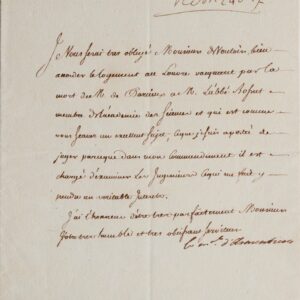 Je Vous serai tres obligé Monsieur de Vouloir bien
accorder le logement au Louvre vaquant par la
mort de M. de Parcieux a M. L'abbé Bossut
membre de l'académie des Sciences et qui est comme
vous savez un excellent sujet, ce que je suis a portée de
juger parceque dans mon Commandement il est
chargé d'examiner les Ingenieurs ce qui me fait y
prendre un veritable Interest.
J'ai l'honneur d'etre tres parfaitement Monsieur
Votre tres humble et tres obeissant serviteur